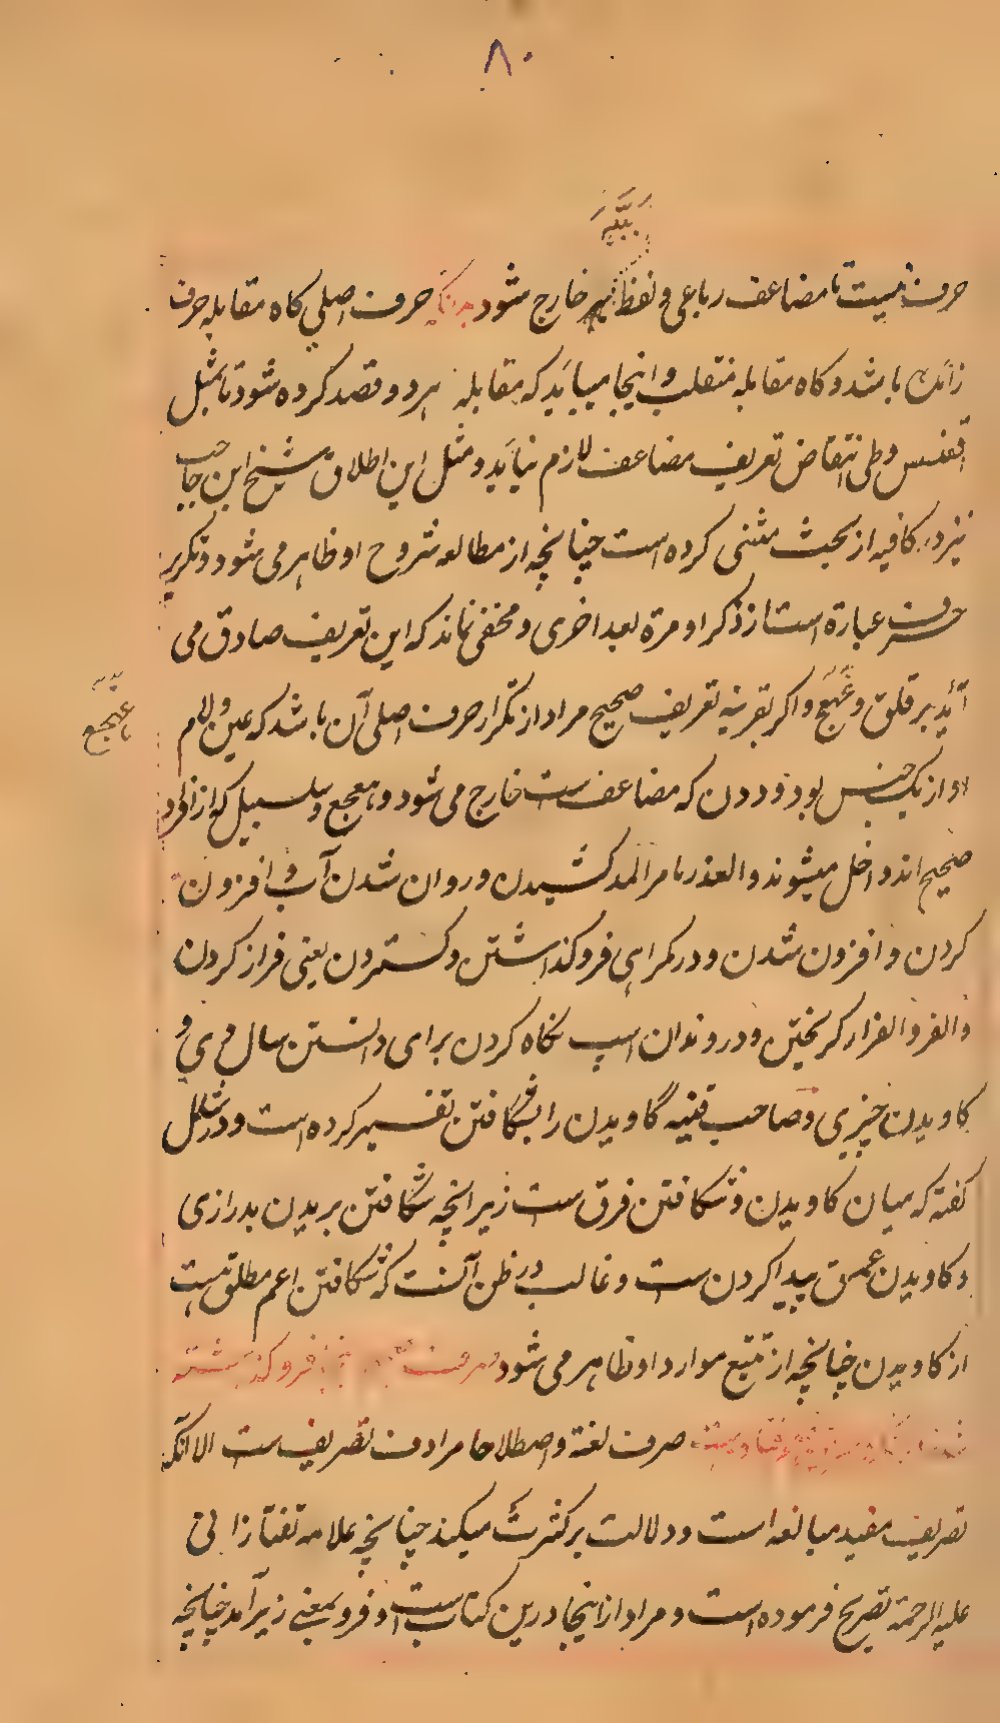 ۸۰
ببّه
حرف نیست تا مضاعف رباعی و لفظ ببه خارج شود بدانکه حرف اصلی کاه مقابله حرف
زائد باشد و کاه مقابله منقلب و اینجا میباید که مقابله هر دو قصد کرده شود تا بمثل
اقعنسس وطی انتقاض تعریف مضاعف لازم نیاید و مثل این اطلاق شیخ ابن حاجب
نیز در کافیه از بحث مثنی کرده است چنانچه از مطالعه شروح او ظاهر می شود و تکریر
حرف عبارة است از ذکر او مرة بعد اخری و مخفی نماند که این تعریف صادق می
آید بر قلق و غهج و اکر بقرینه تعریف صحیح مراد از تکرار حرف اصلی آن باشد که عین و لام
او از یک جنس بود و ددن که مضاعف ست خارج می شود و هعجع و سلسبیل که از افراد
صحیح اند داخل میشوند و العذر نامر المد کشیدن و روان شدن آب و افزون
کردن و افزون شدن و در کمراهی فرو کذاشتن و کستردن یعنی فراز کردن
و الفر و الفرار کریختن و در دندان اسپ نکاه کردن برای دانستن سال وی و
کاویدن چیزی و صاحب قنیه گاویدن را بشکافتن تفسیر کرده است و در شامل
کفته که میان کاویدن و شکافتن فرق ست زیرانچه شکافتن بریدن بدرازی
و کاویدن عمق پیدا کردن ست و غالب در ظن آنست که شکافتن اعم مطلق ست
از کاویدن چنانچه از تتبع موارد او ظاهر می شود فرو کذاشته
صرف لغة و اصطلاحا مرادف تصریف ست الا انکه
تصریف مفید مبالغه است و دلالت بر کثرت میکند چنانچه علامه تفتازانی
علیه الرحمة تصریح فرموده است و مراد از اینجا درین کتاب ست و فرو بمعنی زیر آمد چنانچه